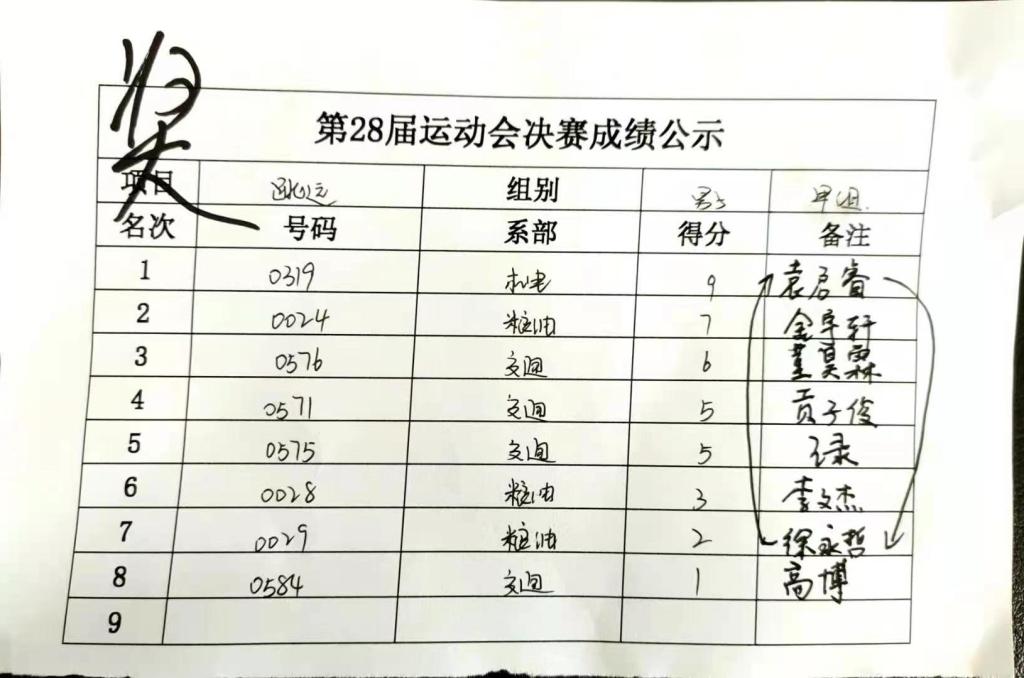 奖
第28届运动会决赛成绩公示
项目 跳远 组别 男子 甲组
名次 号码 系部 得分 备注
1 0319 机电 9 袁启睿
2 0024 粮油 7 金宇轩
3 0576 交通 6 董昊霖
4 0571 交通 5 贡子俊
5 0575 交通 5
6 0028 粮油 3 李文杰
7 0029 粮油 2 徐永哲
8 0584 交通 1 高博
9